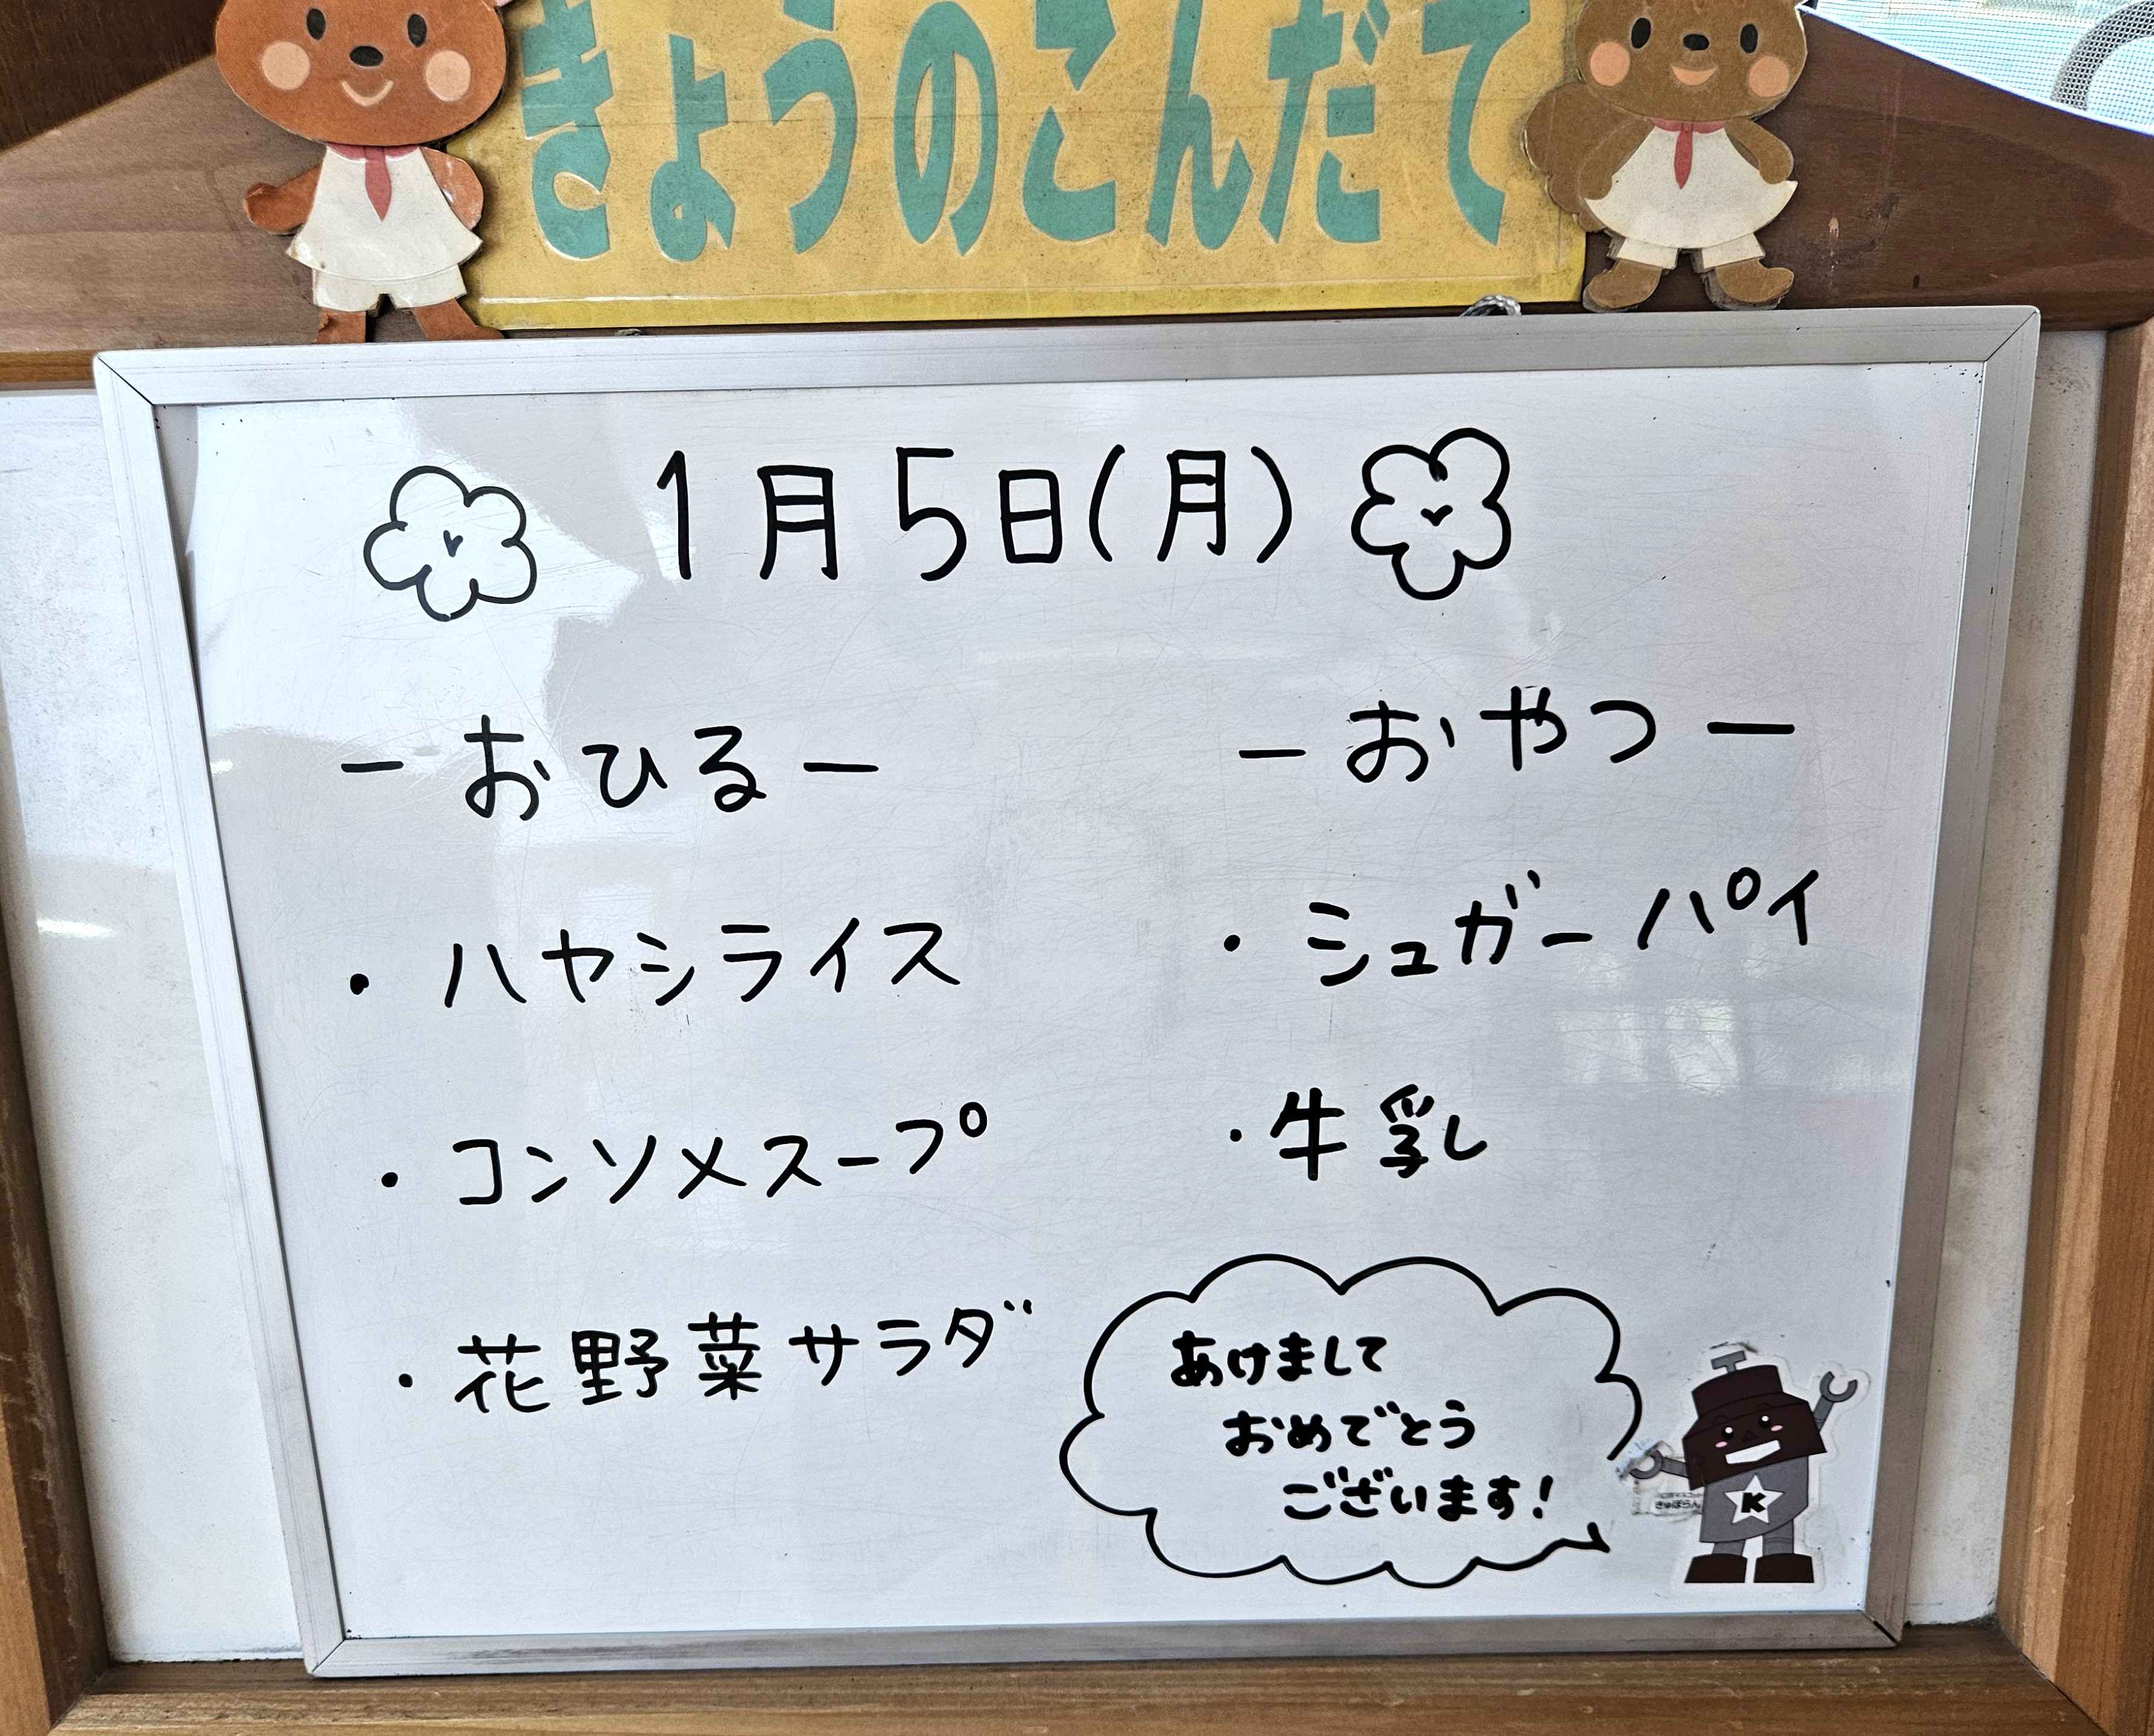 きょうのこんだて
1月5日(月)
ーおひるー
・ハヤシライス
・コンソメスープ
・花野菜サラダ
ーおやつー
・シュガーパイ
・牛乳
あけまして
おめでとう
ございます!
きゅぽらん
K